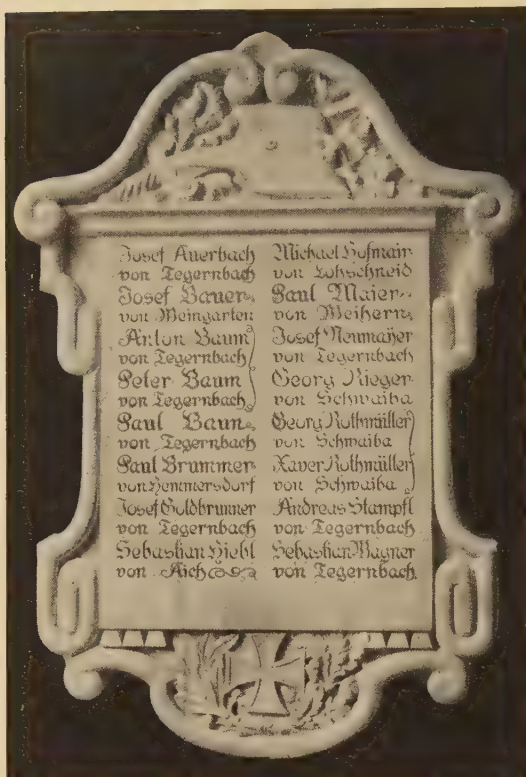 Josef Auerbach
von Tegernbach
Josef Bauer
von Weingarten
Anton Baum
von Tegernbach
Peter Baum
von Tegernbach
Paul Baum
von Tegernbach
Paul Brummer
von Hemmersdorf
Josef Goldbrunner
von Tegernbach
Sebastian Hiebl
von Aich
Michael Hofmair
von Lohschneid
Paul Maier
von Weihern
Josef Neumaÿer
von Tegernbach
Georg Rieger
von Schwaiba
Georg Rothmüller
von Schwaiba
Xaver Rothmüller
von Schwaiba
Andreas Stampfl
von Tegernbach
Sebastian Wagner
von Tegernbach